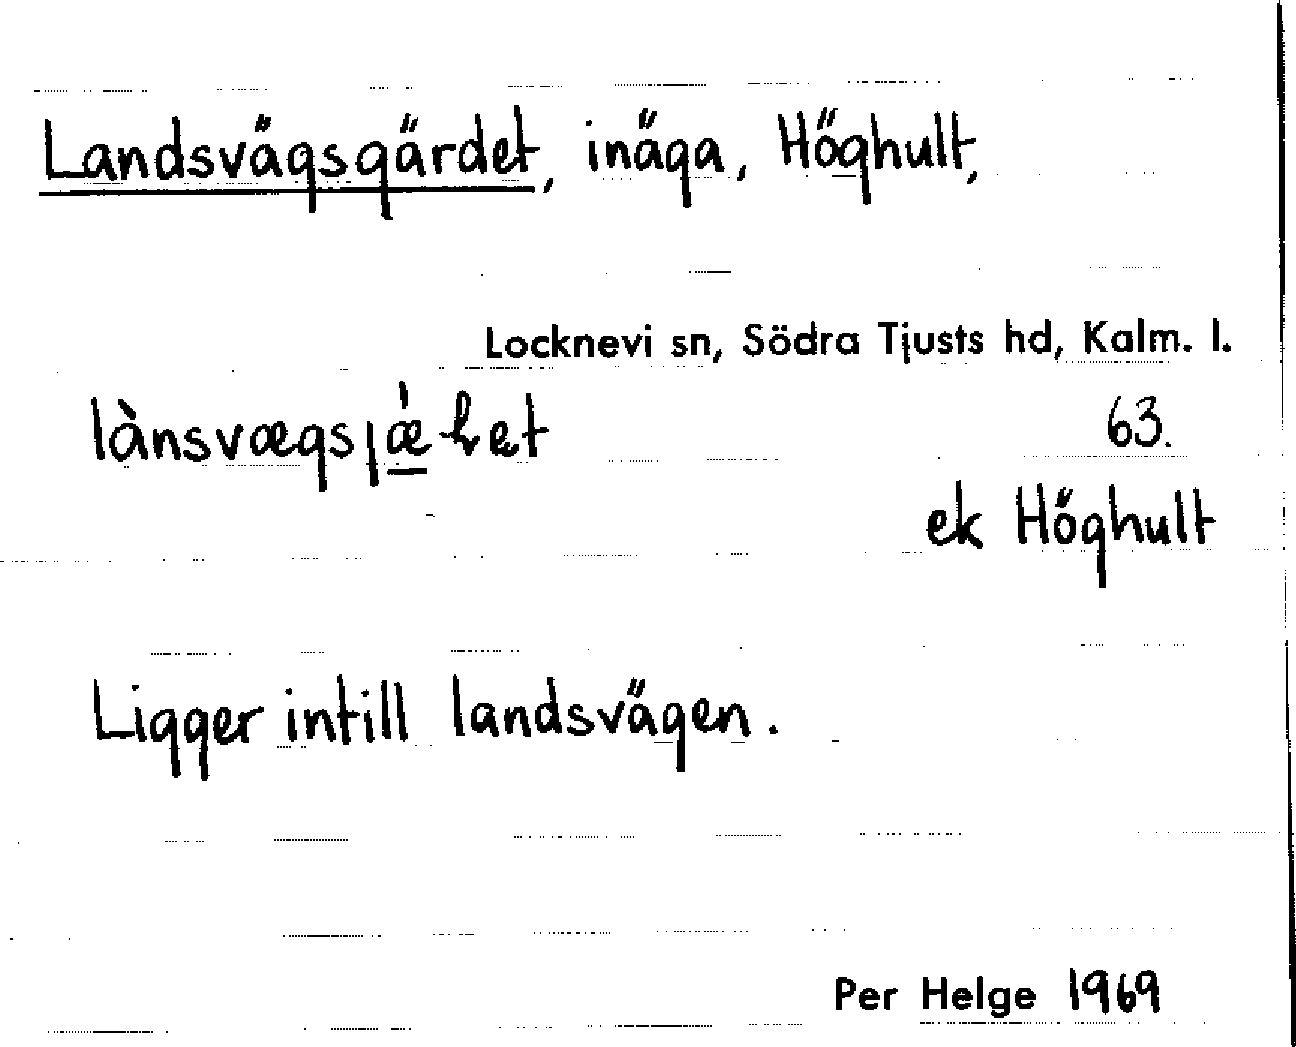 Landsvägsgärdet, inäga, Höghult,
Locknevi sn, Södra Tjusts hd, Kalm. l.
lànsvægsjǽɦet 63.
ek Höghult
Ligger intill landsvägen.
Per Helge 1969